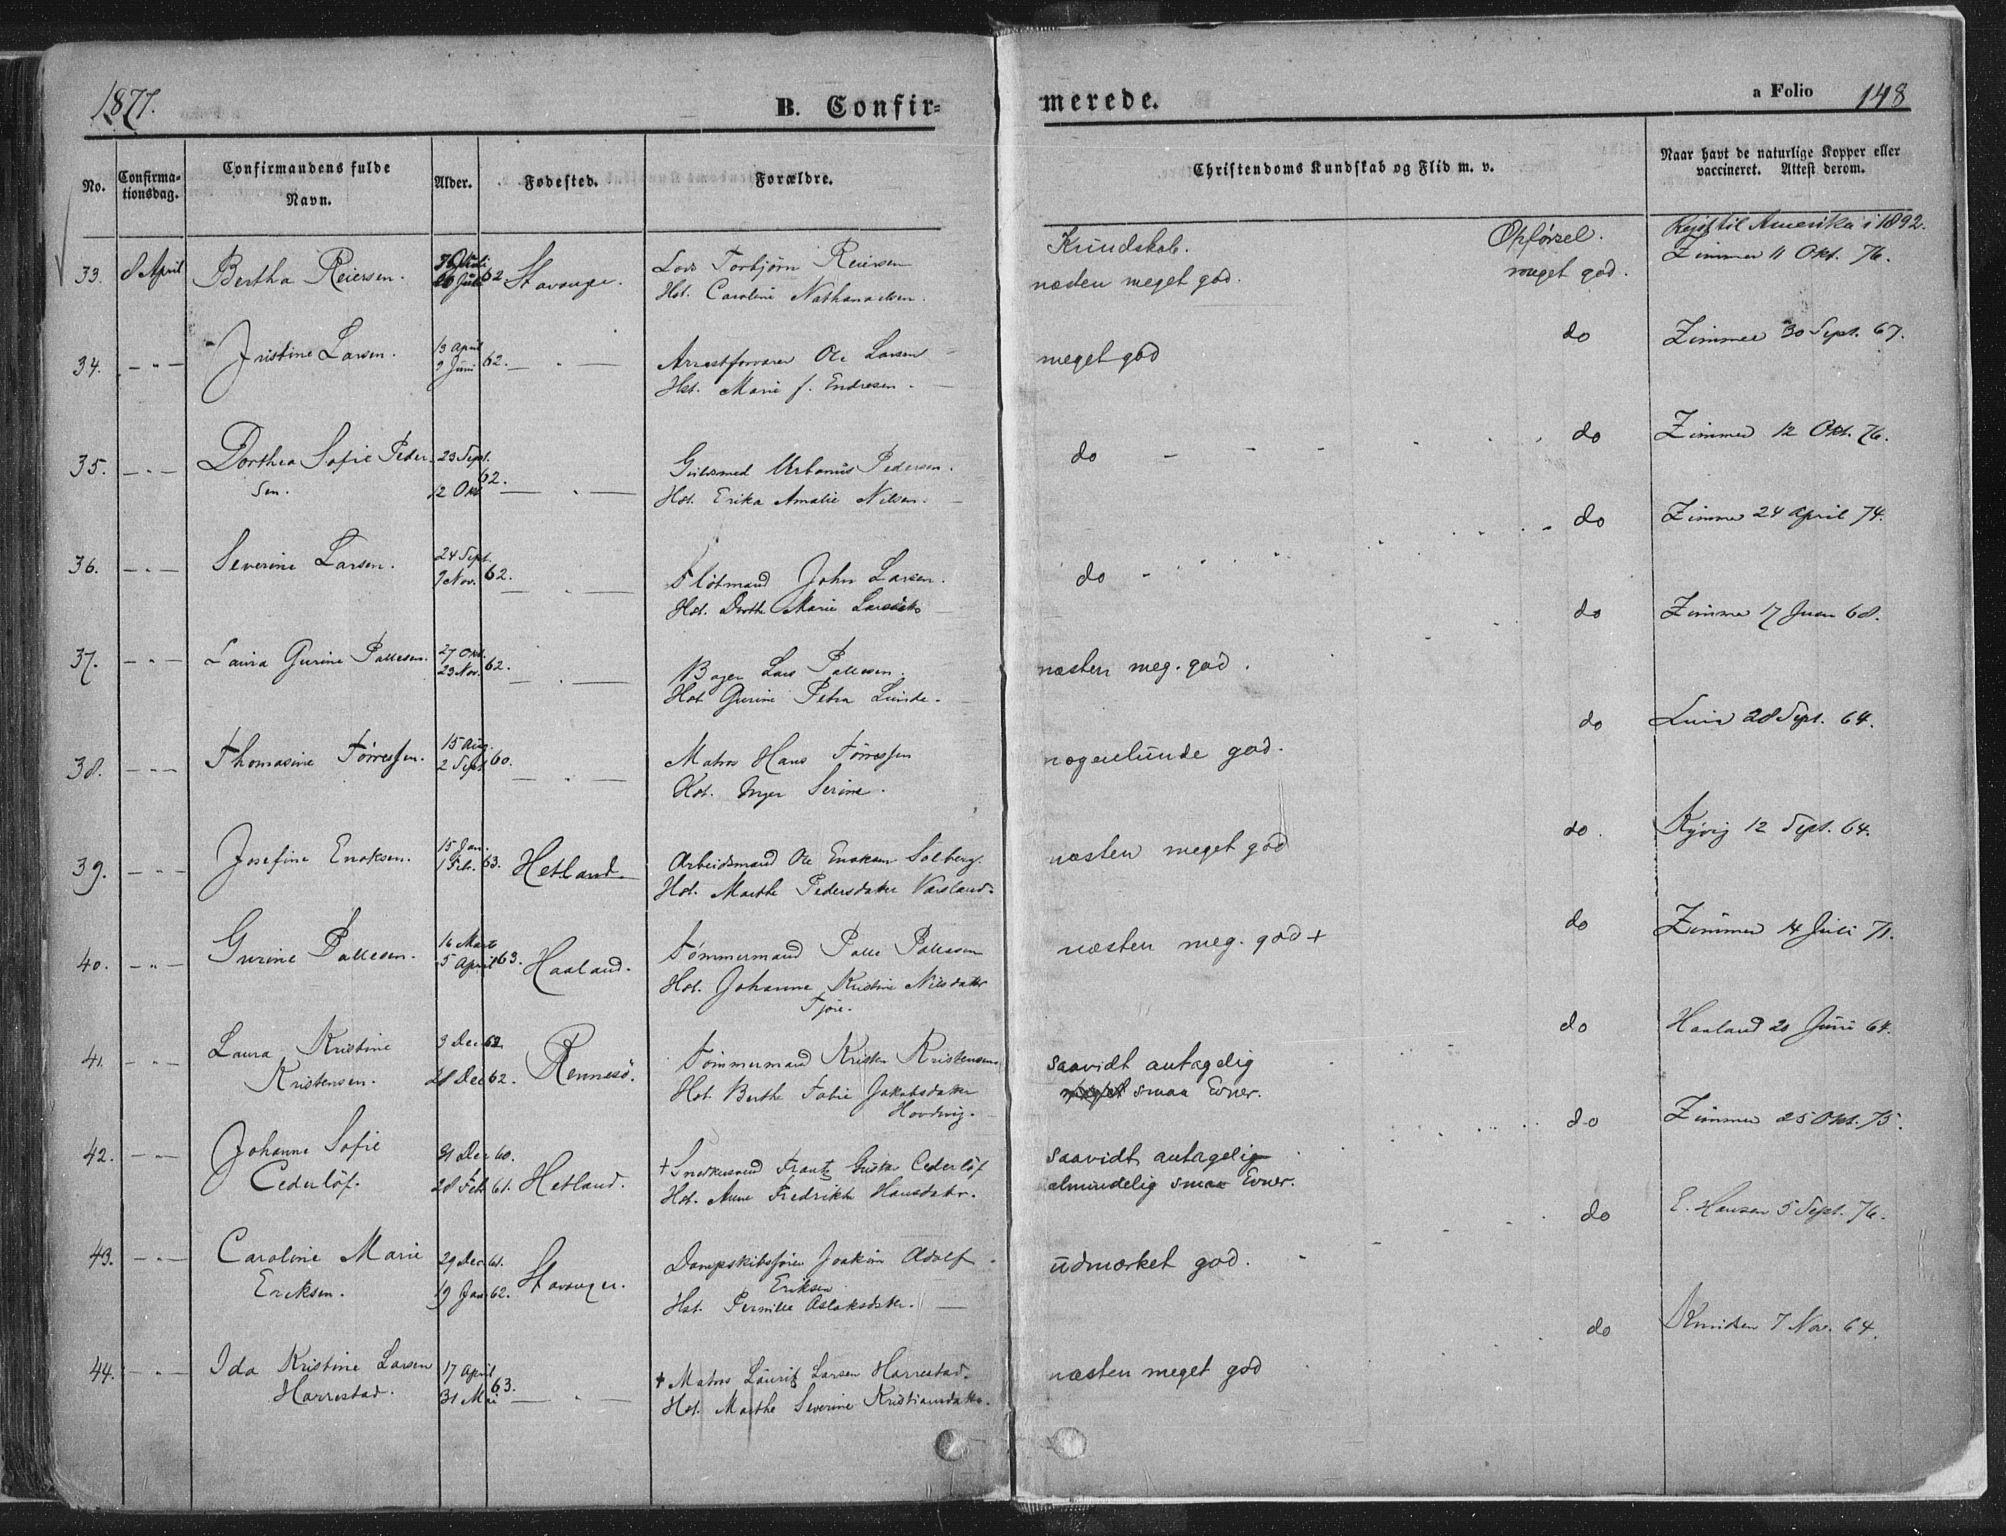 1877.
B. Confir-
merede.
a Folio 148
No.
Confirma-
tionsdag.
Confirmandens fulde
Navn.
Alder.
Fødested.
Forældre.
Christendoms Kundskab og Flid m. v.
Naar havt de naturlige Kopper eller
vaccineret. Attest derom.
Kundskab.
Opførsel.
Reist til Amerika i 1892.
33. 8 April Bertha Reiersen. 62 Stavanger. Lods Torbjørn Reiersen
Hst. Caroline Nathanaelsen.
næsten meget god. meget god. Zimmer 11 Okt. 76.
34. — " — Jristine Larsen. 13 April
9 Juni 62. — " — Arrestforvarer Ole Larsen
Hst. Marie f. Endresen.
meget god do Zimmer 30 Sept. 67.
35. — " — Dorthea Sofie Peder-
sen. 23 Sept.
12 Okt 62. — " — Guldsmed Urbanus Pedersen.
Hst. Erika Amalie Nilsen.
do do Zimmer 12 Okt. 76.
36. — " — Severine Larsen. 24 Sept.
9 Nov. 62. — " — Fløtmand John Larsen.
Hst. Dorthe Marie
do do Zimmer 24 April 74.
37. — " — Laura Gurine Pallesen. 27 Okt.
23 Nov. 62. — " — Bager Lars Pallesen.
Hst Gurine Petra Lunde.
næsten meg. god. do Zimmer 17 Juni 68.
38. — " — Thomasine Tørressen. 15 Aug.
2 Sept 60. — " — Matros Hans Tørressen
Hst. Inger Serine.
nogenlunde god. do 28 Sept. 64.
39. — " — Josefine Enoksen. 15 Jan.
1 Feb. 63. Hetland. Arbeidsmand Ole Enoksen Solberg.
Hst. Marthe Pedersdatter
næsten meget god do. Kyvig 12 Sept. 64.
40. — " — Gurine Pallesen. 16 Marts
5 April 63. Haaland. Tømmermand Palle Pallesen
Hst. Johanne Kristine Nilsdatter
Tjore.
næsten meg. god + do Zimmer 14 Juli 71.
41. — " — Laura Kristine
Kristensen. 3 Dec 62
28 Dec 62. Rennesö. Tømmermand Kristen Kristensen
Hst. Berthe Jakobsdatter
saavidt antagelig
smaa Evner. do Haaland 20 Juni 64.
42. — " — Johanne Sofie
Cederlöf. 31 Dec 60.
28 Feb 61. Hetland. + Frantz Gustav Cederlöf
Hst. Anne Fredrikke Hansdatr.
saavidt antagelig
almindelig smaa Evner. do Zimmer 25 Okt. 75.
43. — " — Caroline Marie
Eriksen. 29 Dec 61.
19 Jan 62. Stavanger. Dampskibsfører Joakim Adolf
Eriksen
Hst. Pernille Aslaksdatter.
udmærket god. do E. Hansen 5 Sept. 76.
44. — " — Ida Kristine Larsen
Harrestad. 17 April
31 Mai 63. — " — + Matros Laurits Larsen Harrestad.
Hst. Marthe Severine Kristiansdatter.
næsten meget god do Knudsen 7 Nov. 64.